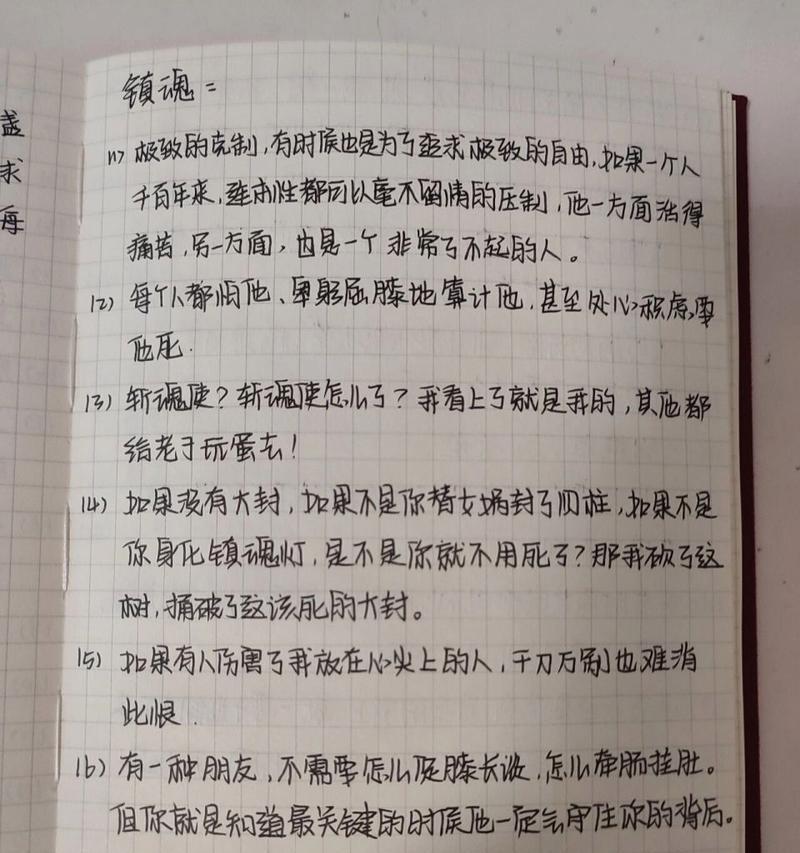 盖
求
每
镇魂=
11) 极致的克制,有时候也是为了追求极致的自由,如果一个人
千百年来,连本性都可以毫不留情的压制,他一方面活得
痛苦,另一方面,也是一个非常了不起的人。
12) 每个人都怕他、卑躬屈膝地算计他,甚至处心积虑要
他死.
13) 斩魂使?斩魂使怎么了?我看上了就是我的,其他都
给老子玩蛋去!
14) 如果没有大封,如果不是你替女娲封了四柱,如果不是
你身化镇魂灯,是不是你就不用死了?那我砍了这
树,捅破了这该死的大封。
15) 如果有人伤害了我放在心尖上的人,千刀万剐也难消
此恨.
16) 有一种朋友,不需要怎么促膝长谈,怎么牵肠挂肚。
但你就是知道最关键的时候他一定会守住你的背后。